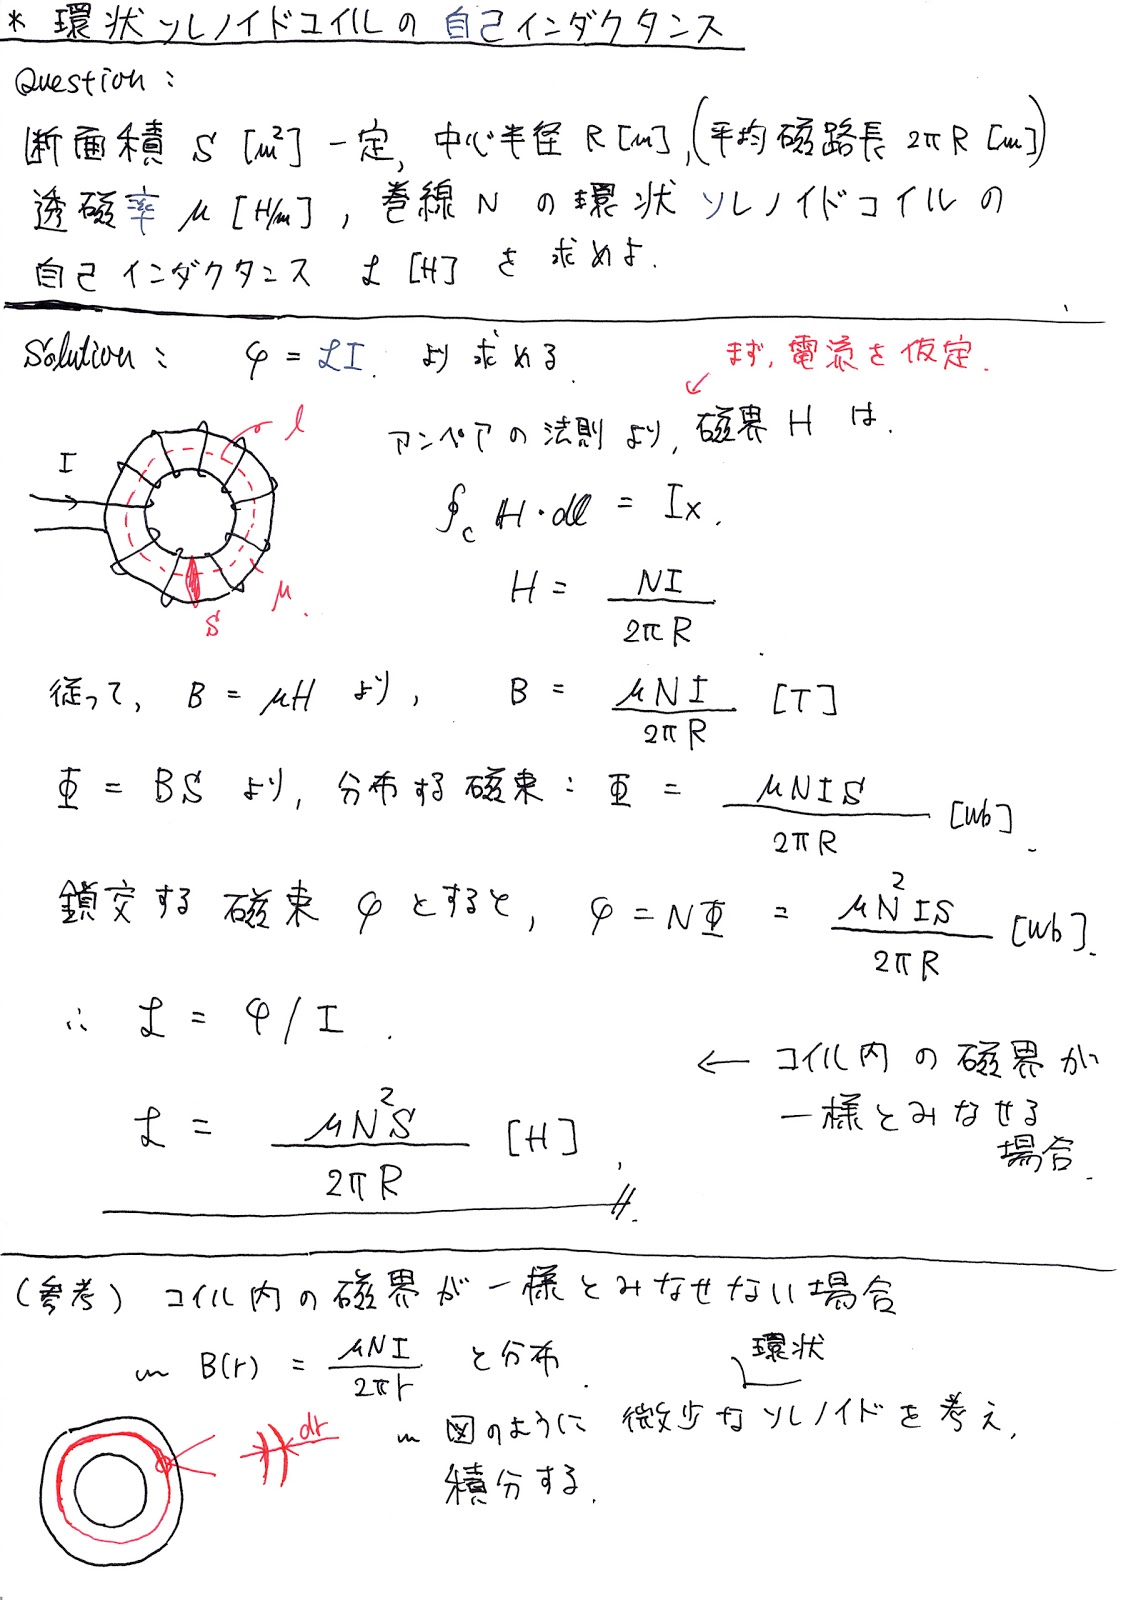 * 環状ソレノイドコイルの自己インダクタンス
Question:
断面積 S [m²] 一定, 中心半径 R [m], (平均磁路長 2πR [m])
透磁率 μ [H/m], 巻線 N の環状ソレノイドコイルの
自己インダクタンス L [H] を求めよ.
Solution: φ = LI. より求める.
まず, 電流を仮定.
アンペアの法則より, 磁界 H は.
I
l
μ.
S
∮c H・dl = Ix.
H = NI / 2πR.
従って, B = μH より, B = μNI / 2πR [T]
Φ = BS より, 分布する磁束: Φ = μNIS / 2πR [Wb].
鎖交する磁束 φ とすると, φ = NΦ = μN²IS / 2πR [Wb].
∴ L = φ / I.
← コイル内の磁界が
一様とみなせる
場合.
L = μN²S / 2πR [H],
(参考) コイル内の磁界が一様とみなせない場合
〜 B(r) = μNI / 2πr と分布.
環状
〜 図のように微少なソレノイドを考え,
積分する.
dr